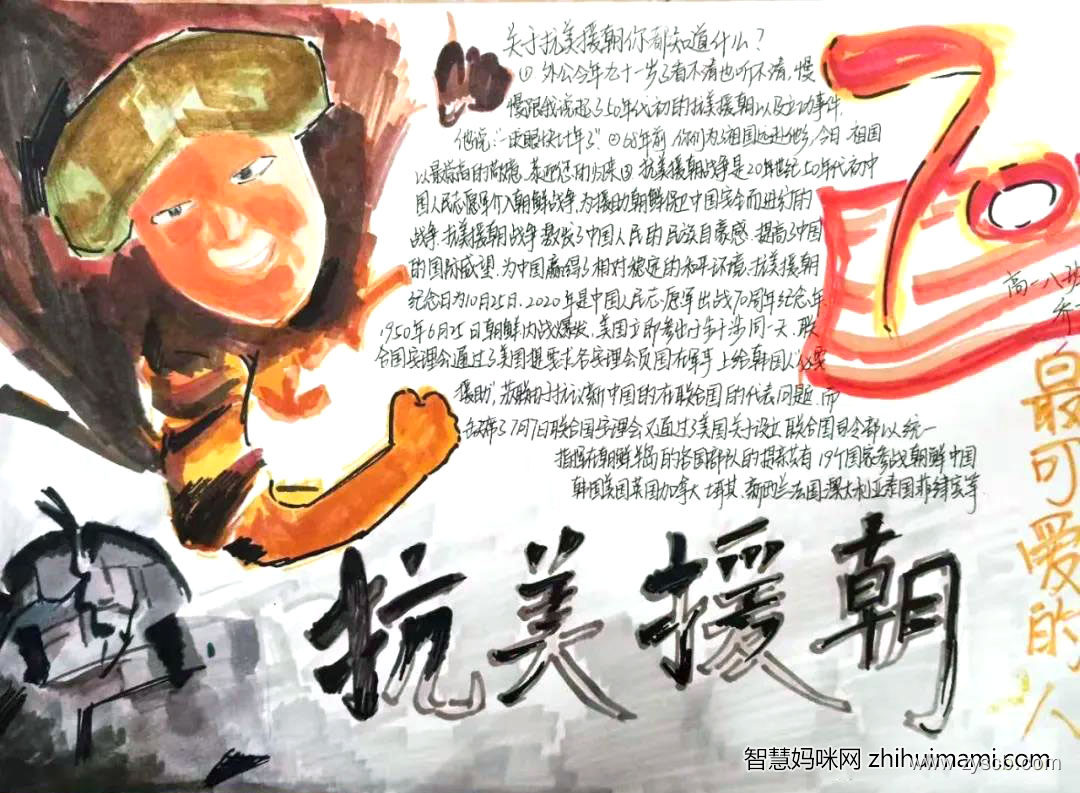 关于抗美援朝你都知道什么?
① 外公今年九十一岁了看不清也听不清,慢
慢跟我说起了50年代初的抗美援朝以及立功事件,
他说:"一眨眼快计年了" ②66年前,你们为祖国远赴他乡,今日,祖国
以最崇高的荣的归来③抗美援朝战争是20年世纪50年代初中
国人民志愿军介入朝鲜战争,为援助朝鲜保卫中国安全而进行的
战争,抗美援朝战争激发了中国人民的民族自豪感,提高了中国
的国际威望,为中国赢得了相对稳定的和平环境,抗美援朝
纪念日为10月25日,2020年是中国人民志愿军出战70周年纪念年,
1950年6月25日朝鲜内战爆发,美国立即参出于同一天,联
合国安理会通过了美国提案求各安理会员国在军事上给韩国以必要
援助,苏联由于抗议新中国的在联合国的代表问题,而
缺席了7月7日联合国安理会又通过了美国关于设立联合国司令部以统一
指挥在朝鲜半岛的各国部队的提案共有19个国家参战朝鲜中国
韩国美国英国加拿大土耳其,新西兰法国,澳大利亚泰国菲律宾等
70
高一八班
乔
最可爱的人
抗美援朝
智慧妈咪网 zhihuimami.com